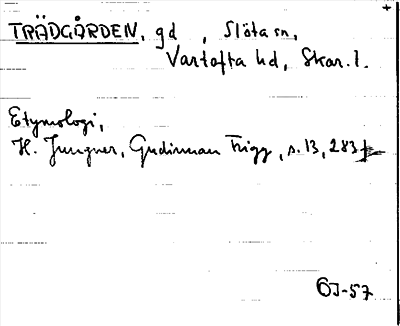 TRÄDGÅRDEN, gd, Slöta sn,
Vartofta hd, Skar. l.
Etymologi,
H. Jungner, Gudinnan Frigg, s. 13, 283 f
57